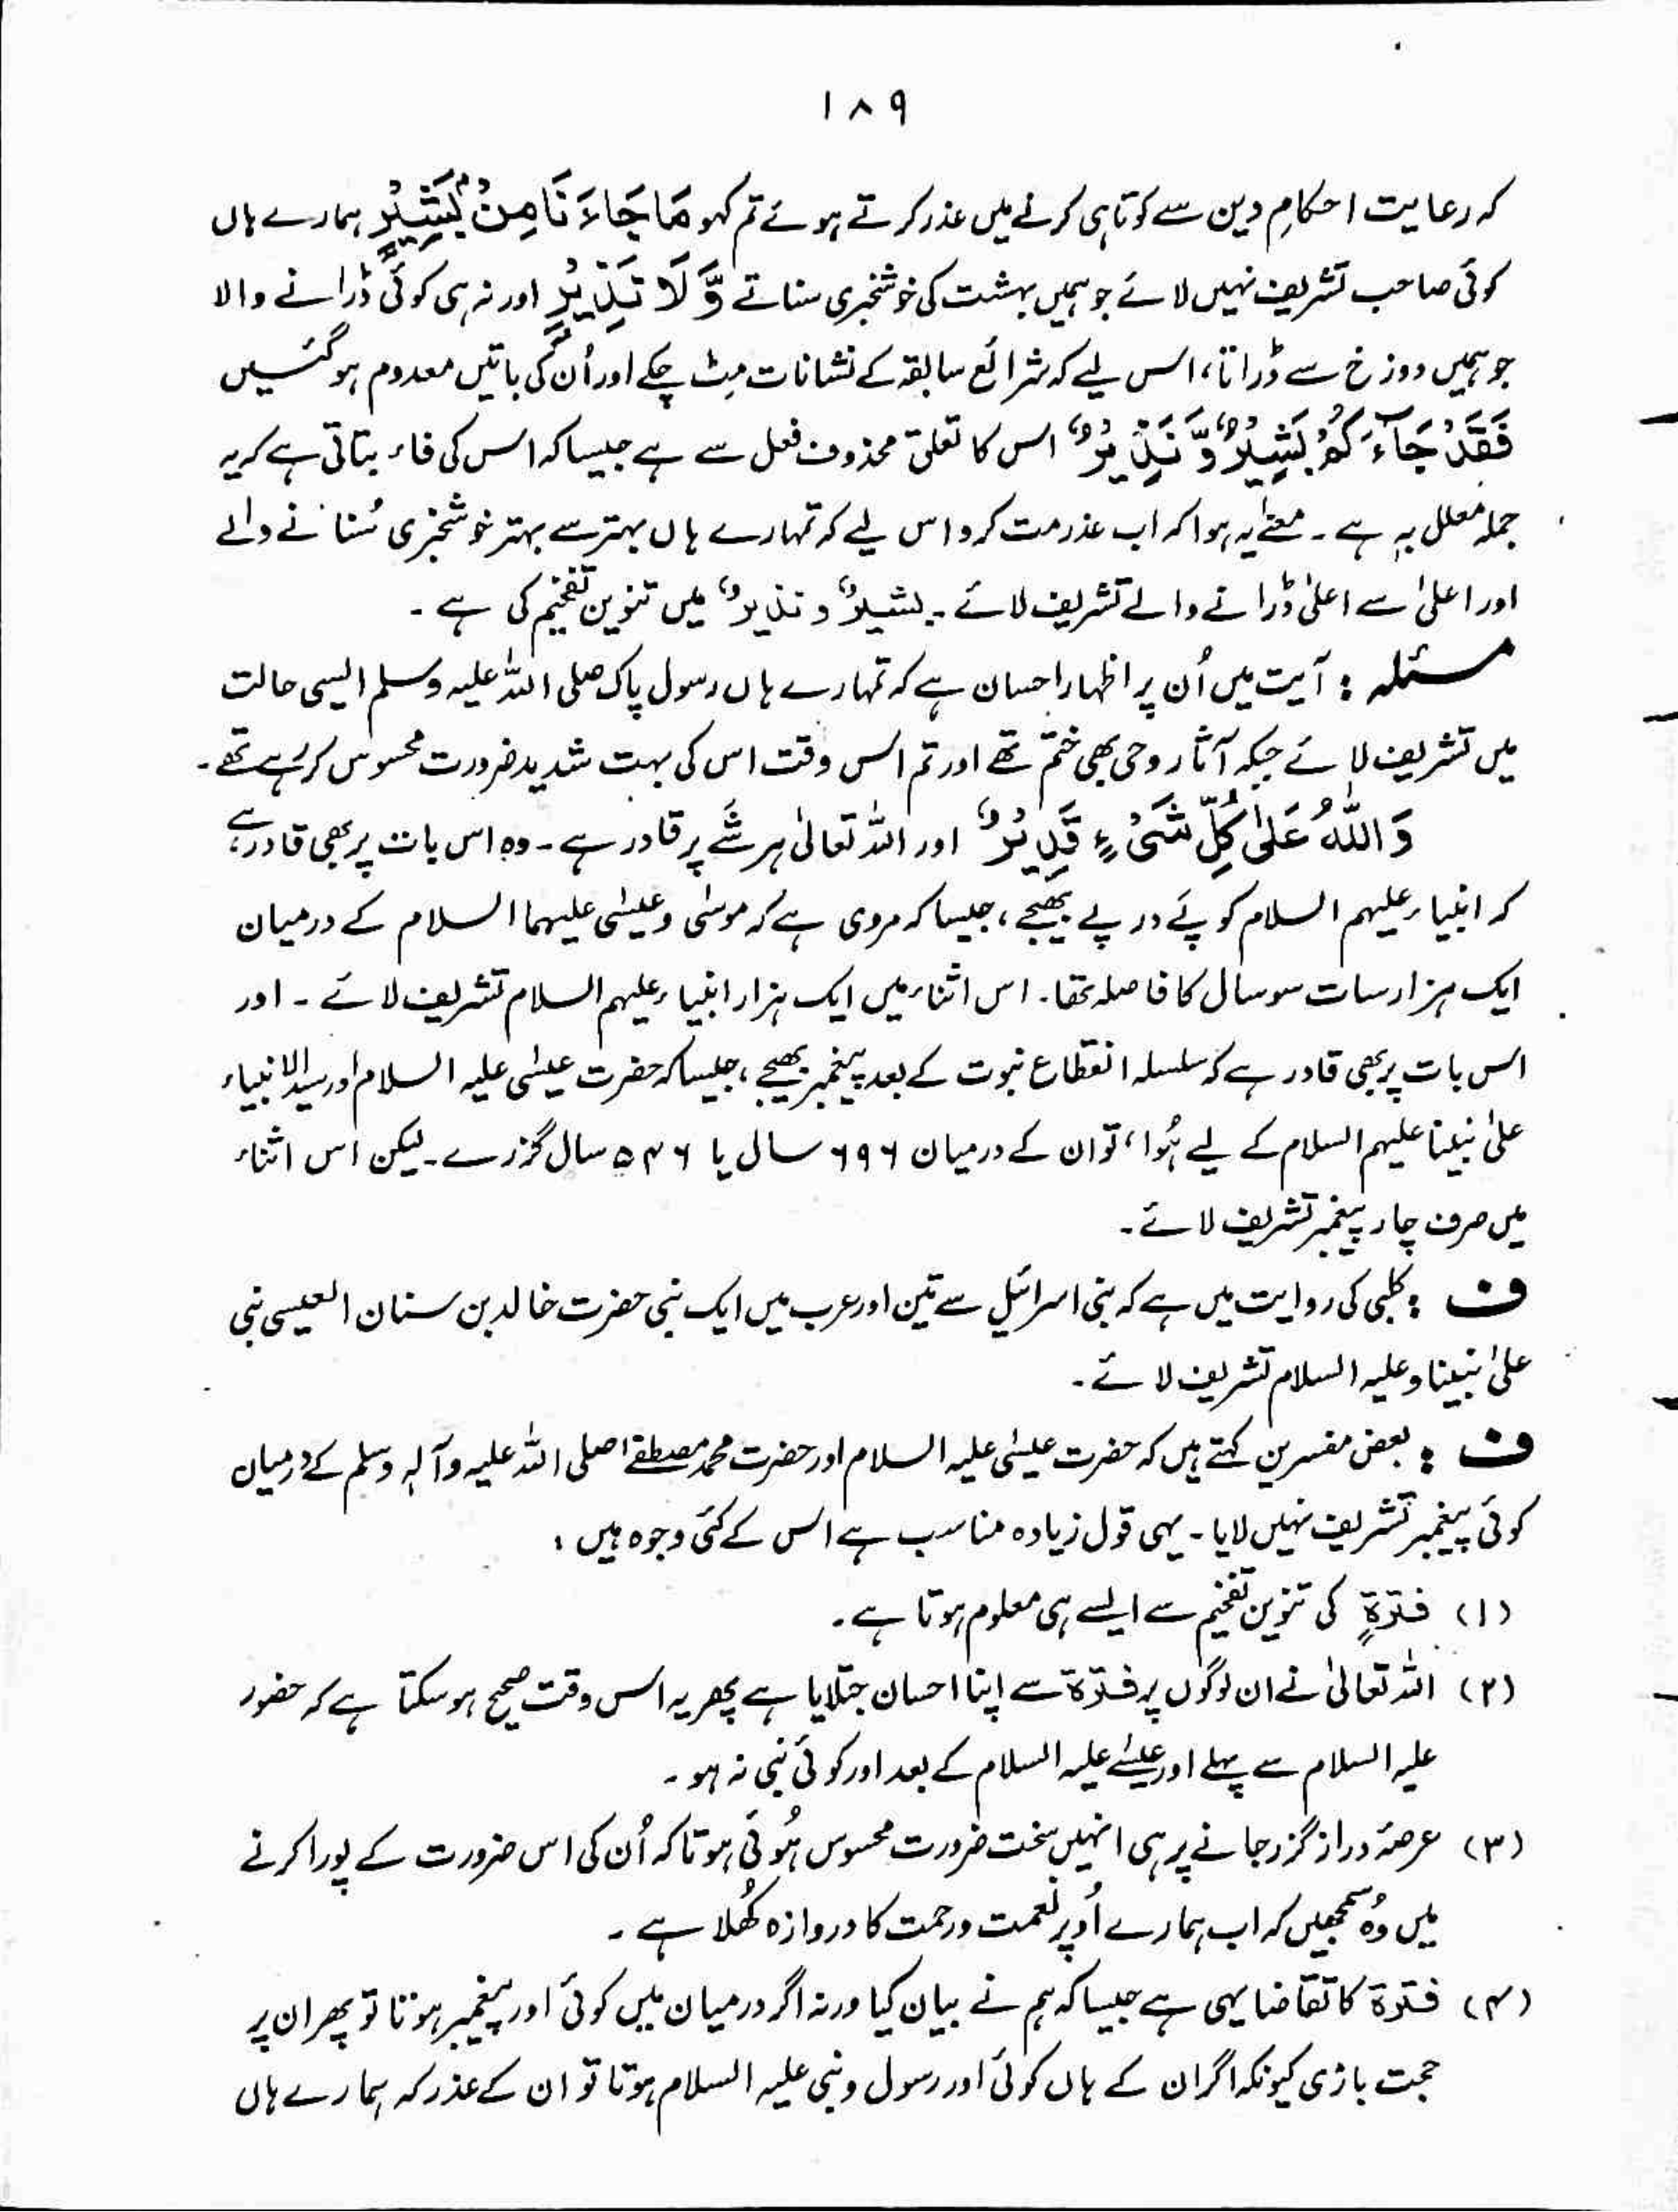 ۱۸۹
کہ رعایت احکامِ دین سے کوتاہی کرنے میں عذر کرتے ہوئے تم کہو مَا جَاءَنَا مِنْۢ بَشِیْرٍ ہمارے ہاں
کوئی صاحب تشریف نہیں لائے جو ہمیں بہشت کی خوشخبری سناتے وَّلَا نَذِیْرٍ اور نہ ہی کوئی ڈرانے والا
جو ہمیں دوزخ سے ڈراتا، اس لیے کہ شرائع سابقہ کے نشانات مٹ چکے اور اُن کی باتیں معدوم ہوگئیں
فَقَدْ جَآءَكُمْ بَشِیْرٌ وَّ نَذِیْرٌ اس کا تعلق محذوف فعل سے ہے جیسا کہ اس کی فاء بتاتی ہے کہ یہ
جملہ معلل بہٖ ہے۔ معنٰے یہ ہوا کہ اب عذر مت کرو اس لیے کہ تمہارے ہاں بہتر سے بہتر خوشخبری سُنانے والے
اور اعلیٰ سے اعلیٰ ڈرانے والے تشریف لائے۔ بشیرٌ و نذیرٌ میں تنوین تفخیم کی ہے۔
مسئلہ : آیت میں اُن پر اظہارِ احسان ہے کہ تمہارے ہاں رسول پاک صلی اللہ علیہ وسلم ایسی حالت
میں تشریف لائے جبکہ آثار وحی بھی ختم تھے اور تم اس وقت اس کی بہت شدید ضرورت محسوس کر رہے تھے۔
وَاللّٰهُ عَلٰى كُلِّ شَیْءٍ قَدِیْرٌ اور اللہ تعالیٰ ہر شے پر قادر ہے۔ وہ اس بات پر بھی قادر ہے
کہ انبیاء علیہم السلام کو پے در پے بھیجے، جیسا کہ مروی ہے کہ موسٰی و عیسٰی علیہما السلام کے درمیان
ایک ہزار سات سو سال کا فاصلہ تھا۔ اس اثناء میں ایک ہزار انبیاء علیہم السلام تشریف لائے۔ اور
اس بات پر بھی قادر ہے کہ سلسلہ انقطاع نبوت کے بعد پیغمبر بھیجے، جیسا کہ حضرت عیسٰی علیہ السلام اور سید الانبیاء
علیٰ نبینا علیہم السلام کے لیے ہُوا، تو ان کے درمیان ۶۹۶ سال یا ۵۴۶ سال گزرے۔ لیکن اس اثناء
میں صرف چار پیغمبر تشریف لائے۔
ف : کلبی کی روایت میں ہے کہ بنی اسرائیل سے تین اور عرب میں ایک نبی حضرت خالد بن سنان العیسی نبی
علیٰ نبینا و علیہ السلام تشریف لائے۔
ف : بعض مفسرین کہتے ہیں کہ حضرت عیسٰی علیہ السلام اور حضرت محمد مصطفےٰ صلی اللہ علیہ وآلہٖ وسلم کے درمیان
کوئی پیغمبر تشریف نہیں لایا۔ یہی قول زیادہ مناسب ہے اس کے کئی وجوہ ہیں :
(۱) فترۃٍ کی تنوین تفخیم سے ایسے ہی معلوم ہوتا ہے۔
(۲) اللہ تعالیٰ نے ان لوگوں پر فترۃ سے اپنا احسان جتلایا ہے پھر یہ اس وقت صحیح ہو سکتا ہے کہ حضور
علیہ السلام سے پہلے اور عیسٰے علیہ السلام کے بعد اور کوئی نبی نہ ہو۔
(۳) عرصۂ دراز گزر جانے پر ہی انہیں سخت ضرورت محسوس ہُوئی ہو تاکہ اُن کی اس ضرورت کے پورا کرنے
میں وُہ سمجھیں کہ اب ہمارے اُوپر نعمت و رحمت کا دروازہ کُھلا ہے۔
(۴) فترۃ کا تقاضا یہی ہے جیسا کہ ہم نے بیان کیا ورنہ اگر درمیان میں کوئی اور پیغمبر ہوتا تو پھر ان پر
حجت بازی کیونکہ اگر ان کے ہاں کوئی اور رسول و نبی علیہ السلام ہوتا تو ان کے عذر کہ ہمارے ہاں